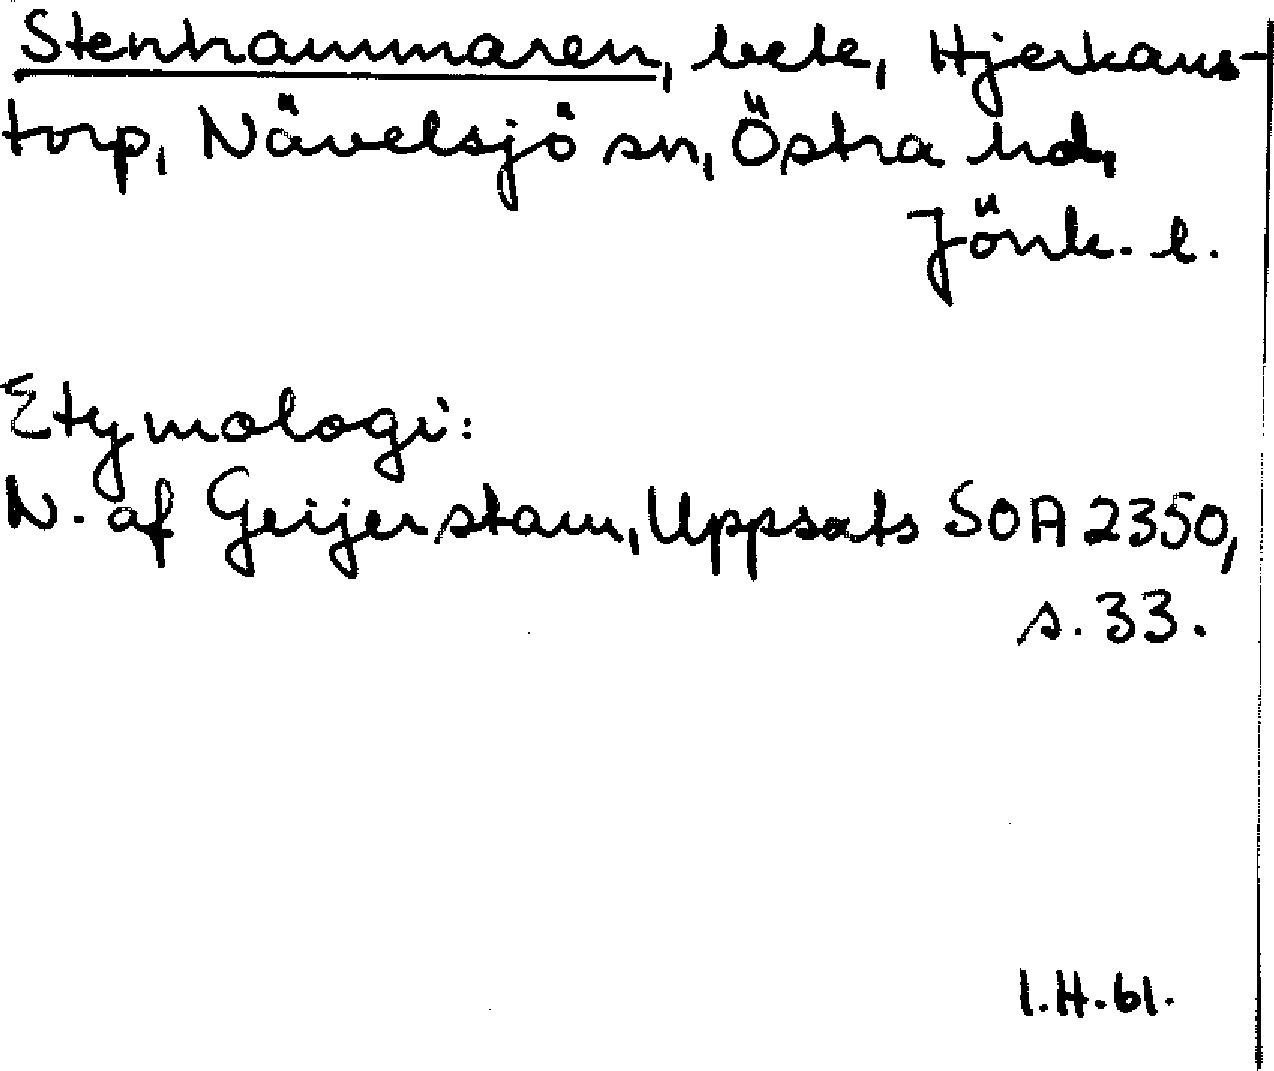 Stenhammaren, bete, Hjerkans-
torp, Nävelsjö sn, Östra hd,
Jönk. l.
Etymologi:
N. af Geijerstam, Uppsats SOA 2350,
s. 33.
I.H.61.